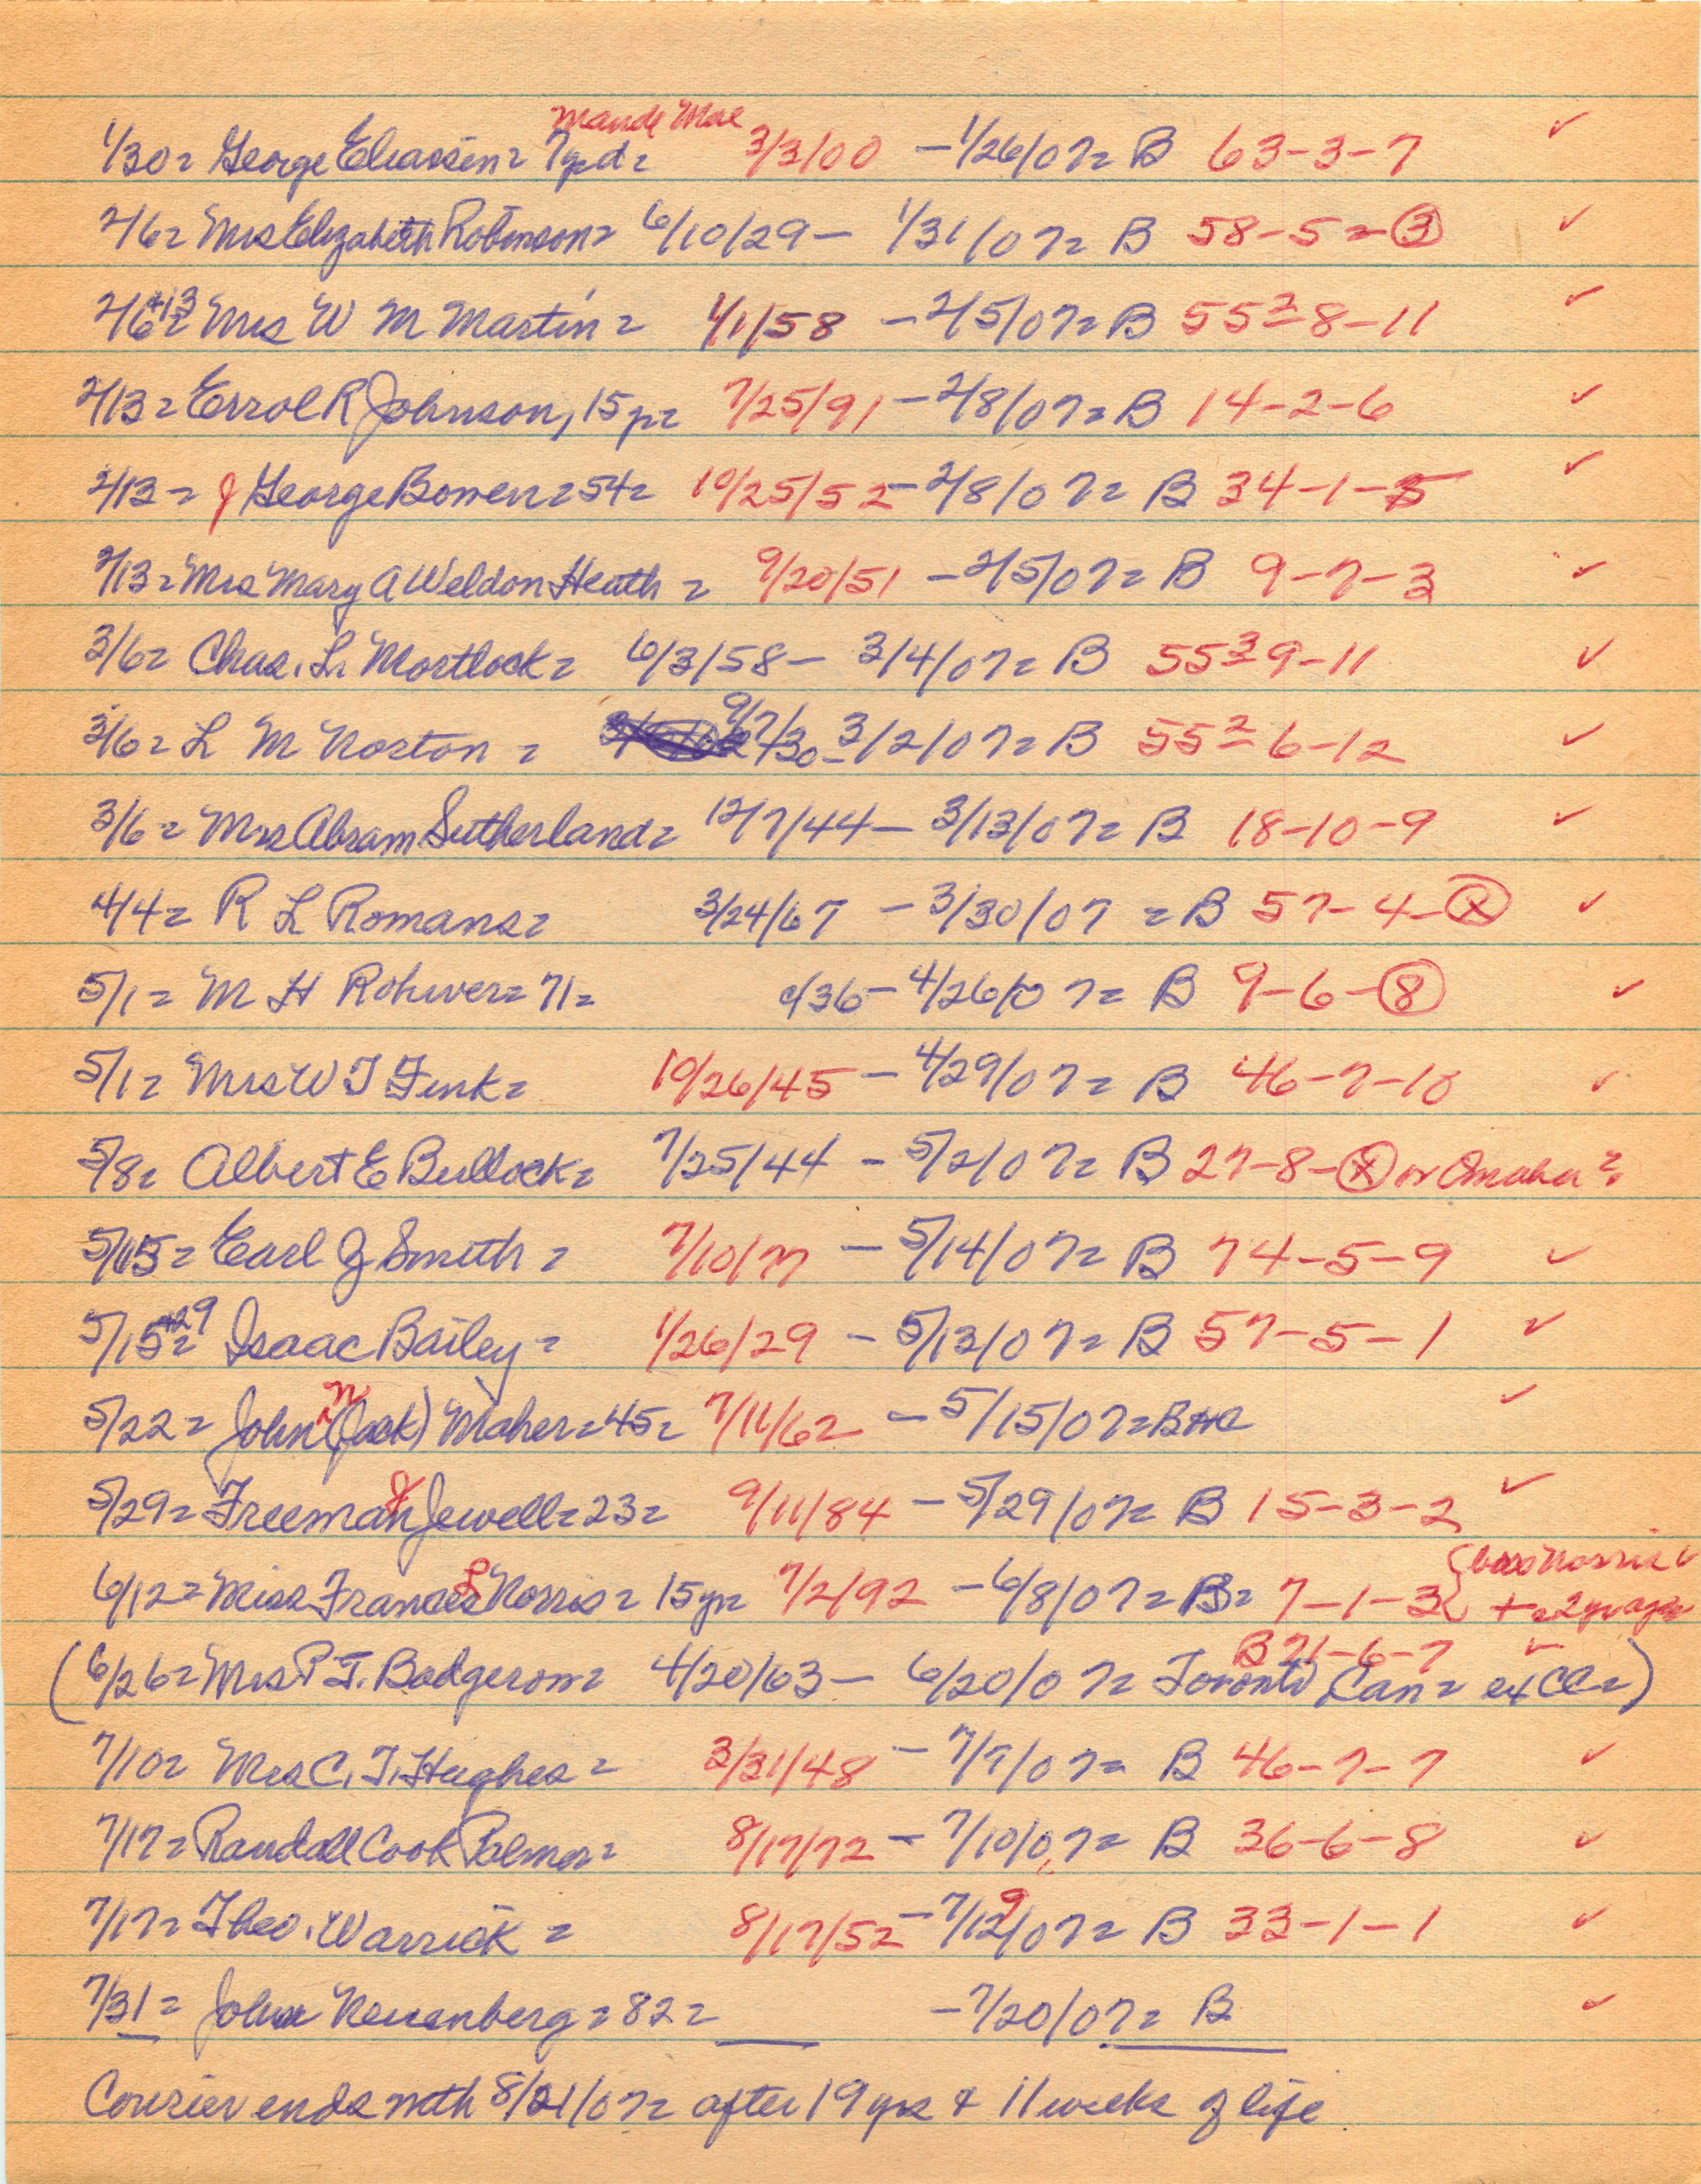 Maude Mae
1/30= George Eliassen= 7yrd= 3/3/00 - 1/26/07= B 63-3-7 ✓
2/6= Mrs Elizabeth Robinson= 6/10/29 - 1/31/07= B 58-5-③ ✓
2/6+13= Mrs W M Martin= 1/1/58 - 2/5/07= B 55²-8-11 ✓
2/13= Errol R Johnson, 15yr= 7/25/91 - 2/8/07= B 14-2-6 ✓
2/13= J George Bowen=54= 10/25/52 - 2/8/07= B 34-1-5 ✓
2/13= Mrs Mary A Weldon Heath = 9/20/51 - 2/5/07= B 9-7-3 ✓
3/6= Chas. L. Mortlock= 6/3/58 - 3/4/07= B 55³-9-11 ✓
3/6= L M Norton = 9/7/30 - 3/2/07= B 55²-6-12 ✓
3/6= Mrs Abram Sutherland= 12/7/44 - 3/13/07= B 18-10-9 ✓
4/4= R L Romans= 3/24/67 - 3/30/07 = B 57-4-Ⓧ ✓
5/1= M H Rohwer= 71= c/36 - 4/26/07= B 9-6-⑧ ✓
5/1= Mrs W T Fink= 10/26/45 - 4/29/07= B 46-7-10 ✓
5/8= Albert E Bullock= 7/25/44 - 5/2/07= B 27-8-Ⓧ or Omaha?
5/15= Earl J Smith= 7/10/77 - 5/14/07= B 74-5-9 ✓
5/15+29= Isaac Bailey= 1/26/29 - 5/13/07= B 57-5-1 ✓
5/22= John N (Jack) Maher=45= 7/11/62 - 5/15/07=B HC ✓
5/29= Freeman J Jewell=23= 9/11/84 - 5/29/07= B 15-3-2 ✓
6/12= Miss Frances L Norris= 15yr= 7/2/92 - 6/8/07= B= 7-1-3 { Norris ✓
+ 2yr
B 71-6-7 ✓
(6/26= Mrs P. T. Badgerow= 4/20/63 - 6/20/07= Toronto Can= ex CC=)
7/10= Mrs C. T. Hughes= 3/31/48 - 7/7/07= B 46-7-7 ✓
7/17= Randall Cook Palmer= 8/17/72 - 7/10/07= B 36-6-8 ✓
7/17= Theo. Warrick = 8/17/52 - 7/129/07= B 33-1-1 ✓
7/31= John Neuenberg=82= - 7/20/07= B ✓
Courier ends with 8/21/07= after 19 yrs & 11 weeks of life